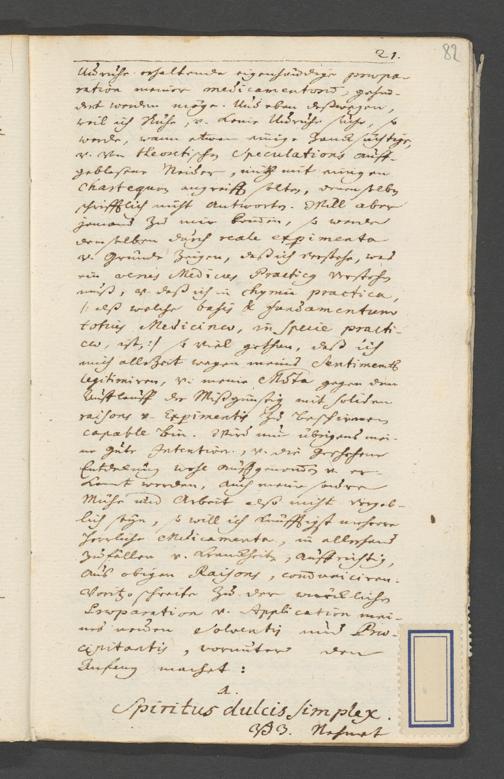 21. 82
Unruhe erhaltende eigenhändige præpa-
ration meiner medicamentorum,
dert werden möge. Und eben deßwegen,
weil ich Ruhe, v. keine Unruhe suche, so
werde, wann etwan einige
v. von theoretischen Speculations auff-
geblasene Neider, mich mit einigen
Chartequen angreiffen solten, denenselben
schrifftlich nicht antworten. Will aber
jemand zu mir kommen, so werde
demselben durch reale expimenta
v. Gründe zeigen, daß ich verstehe, was
ein Medicus Practicus verstehen
muß, v. daß ich in chymia practica,
|: alß welche basis & fundamentum
totius Medicinæ, in specie practi-
cæ, ist, :| so viel gethan, daß ich
mich allezeit wegen meines Sentiments
legitimiren, v. meine gegen den
der Mißgünstigen mit soliden
raisons v. Expimentis zu beschirmen
capable bin. Wird nun übrigens mei-
ne gute Intention, v. die geschehene
Entdeckung wohl auffgenommen v. er-
kannt werden, auch meine
Mühe und Arbeit alß nicht vergeb-
lich seyn, so will ich künfftighin mehrere
herrliche Medicamenta, in allerhand
Zufällen v. Kranckheiten, auffrichtig,
aus obigen Raisons, communiciren.
schreite zu der würcklichen
Præparation v. Application mei-
nes solventis und Præ-
cipitantis, worunter den
Anfang machet:
1.
Spiritus dulcis simplex.
Nehmet